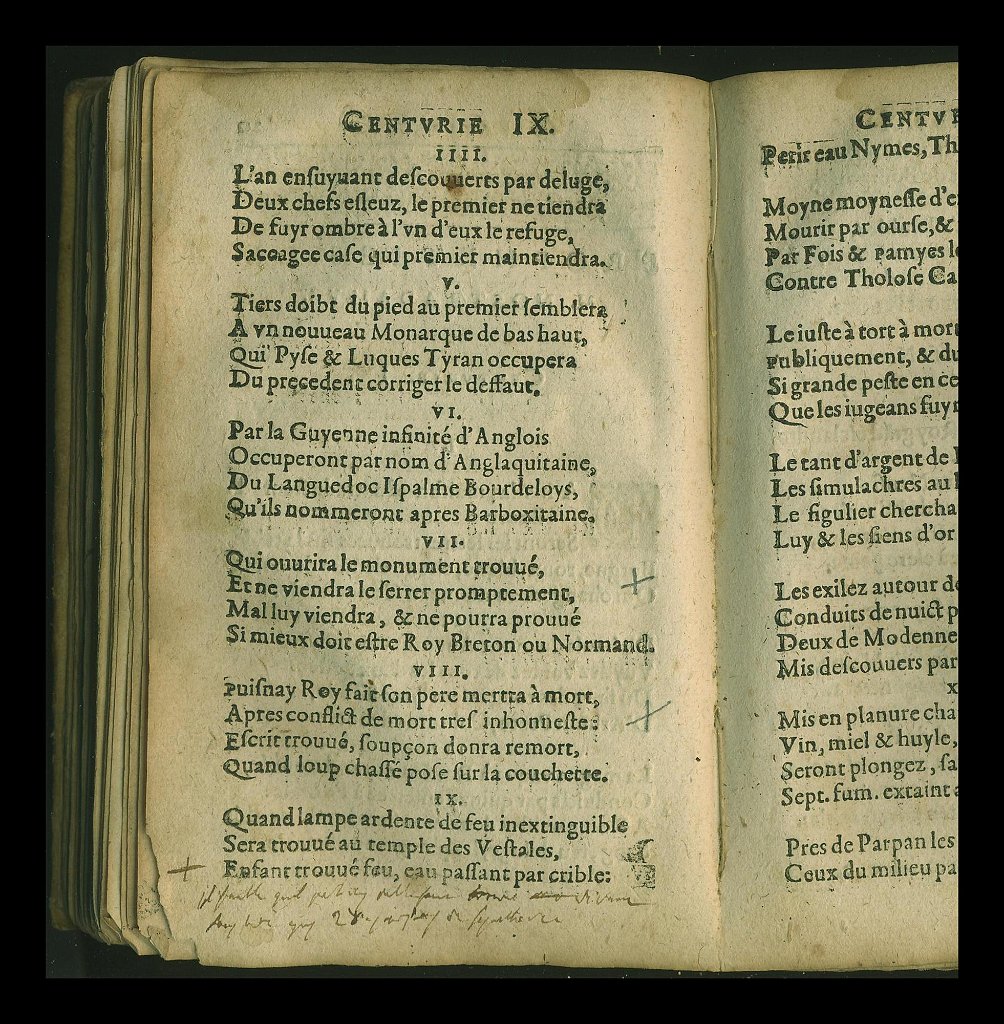 CENTVRIE IX.
IIII.
L'an enſuyuant deſcouuerts par deluge,
Deux chefs eſleuz, le premier ne tiendra
De fuyr ombre à l'vn d'eux le refuge,
Saccagee caſe qui premier maintiendra.
V.
Tiers doibt du pied au premier ſemblera
A vn nouueau Monarque de bas haut,
Qui Pyſe & Luques Tyran occupera
Du precedent corriger le deffaut.
VI.
Par la Guyenne infinité d'Anglois
Occuperont par nom d'Anglaquitaine,
Du Languedoc Iſpalme Bourdeloys,
Qu'ils nommeront apres Barboxitaine.
VII.
Qui ouurira le monument trouué,
Et ne viendra le ſerrer promptement,
Mal luy viendra, & ne pourra prouué
Si mieux doit eſtre Roy Breton ou Normand.
VIII.
Puiſnay Roy fait ſon pere mettra à mort,
Apres conflict de mort treſ inhonneſte:
Eſcrit trouué, ſoupçon donra remort,
Quand loup chaſſé poſe ſur la couchette.
IX.
Quand lampe ardente de feu inextinguible
Sera trouué au temple des Veſtales,
Enfant trouué feu, eau paſſant par crible:
CENTV
Perir eau Nymes, Th
Moyne moyneſſe d'e
Mourir par ourſe, &
Par Fois & pamyes l
Contre Tholoſe Ca
Le iuſte à tort à mort
Publiquement, & du
Si grande peſte en ce
Que les iugeans fuy
Le tant d'argent de
Les ſimulachres au
Le figulier chercha
Luy & les ſiens d'or
Les exilez autour de
Conduits de nuict p
Deux de Modenne
Mis deſcouuers par
X
Mis en planure cha
Vin, miel & huyle,
Seront plongez, ſa
Sept. fum. extaint
Pres de Parpan les
Ceux du milieu pa